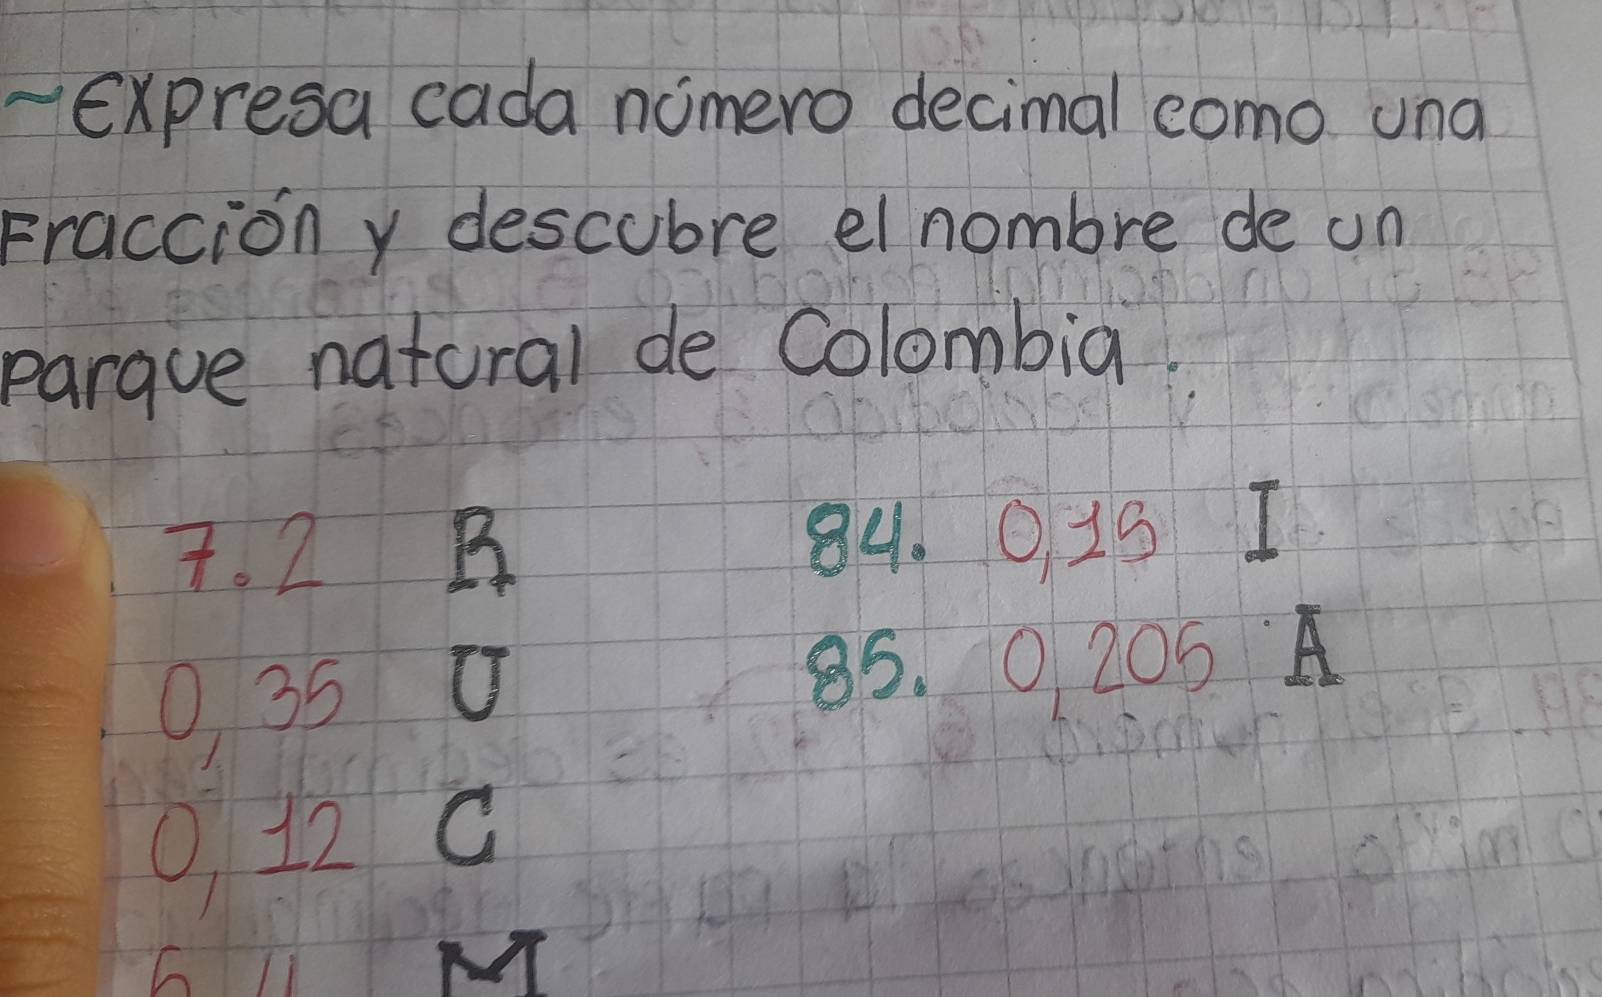 ~Expresa cada número decimal como una
Fracción y descubre el nombre de un
parque natural de Colombia.
7.2 R 84. 0,15 I
0,35 U 85. 0,205 A
0,12 C
M